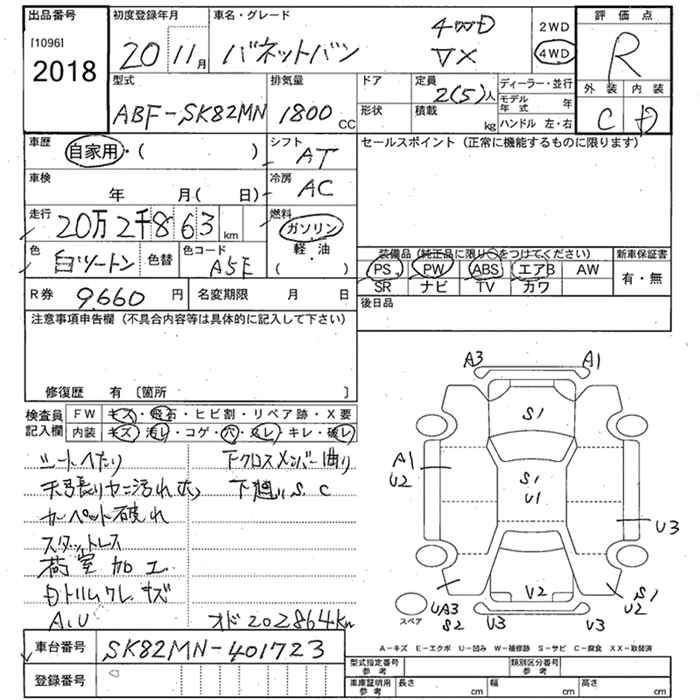 出品番号 初度登録年月 車名・グレード 評価点
[1096]
2018
20 11月 バネットバン 4WD VX
2WD
4WD
R
型式 排気量 ドア 定員 ディーラー・並行 外装 内装
ABF-SK82MN 1800CC 2(5)人
形状 積載 kg モデル年式 年
ハンドル 左・右
C D
車歴 自家用・( )
シフト AT
セールスポイント (正常に機能するものに限ります)
車検 年 月( 日)
冷房 AC
走行 20万2千863km
燃料 ガソリン 軽・油 ( )
色 白ツートン 色替 色コード A5E
装備品(純正品に限り○をつけてください) 新車保証書
PS PW ABS エアB AW 有・無
SR ナビ TV カワ
R券 9660円 名変期限 月 日
後日品
注意事項申告欄(不具合内容等は具体的に記入して下さい)
修復歴 有〔箇所 〕
検査員記入欄
FW キズ・飛石・ヒビ割・リペア跡・X要
内装 キズ・汚レ・コゲ・穴・スレ・キレ・破レ
シートへたり 下クロスメンバー曲り
天張りヤニ汚れ大 下廻りS.C
カーペット破れ
スタットレス
荷室加工
内トリムワレ キズ
A.U オド202864km
A3 A1
S1
A1
U2
S1
U1
U3
V2
UA3
S2
V3 V3
S1
U2
スペア
A-キズ E-エクボ U-凹み W-補修跡 S-サビ C-腐食 XX-取替済
車台番号 SK82MN-401723
型式指定番号 参考 類別区分番号 参考
登録番号
車庫証明用 参考 長さ cm 幅 cm 高さ cm